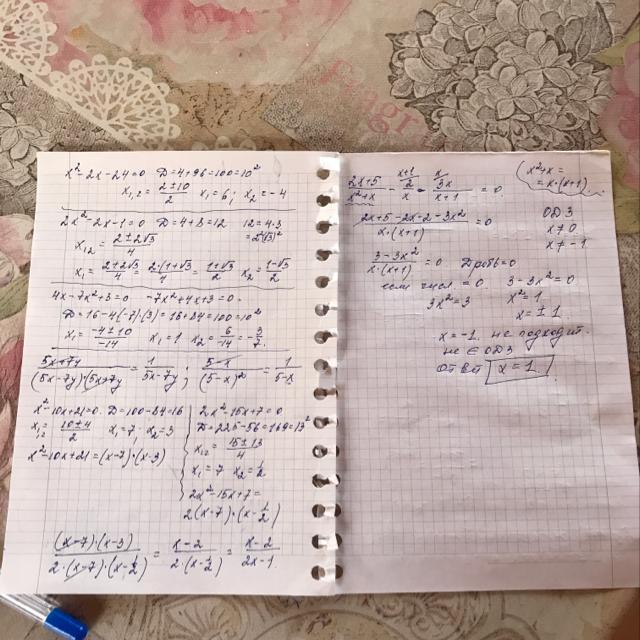 x² - 2x - 24 = 0 D = 4 + 96 = 100 = 10²
x₁,₂ = (2 ± 10)/2 x₁ = 6; x₂ = -4
2x² - 2x - 1 = 0 D = 4 + 8 = 12 12 = 4·3
= 2²(√3)²
x₁₂ = (2 ± 2√3)/4
x₁ = (2 + 2√3)/4 = 2·(1+√3)/4 = (1+√3)/2 x₂ = (1-√3)/2
4x - 7x² + 3 = 0 -7x² + 4x + 3 = 0
D = 16 - 4(-7)(3) = 16 + 84 = 100 = 10²
x₁ = (-4 ± 10)/-14 x₁ = 1 x₂ = -6/14 = -3/7
(5x+7y)/((5x-7y)(5x+7y)) = 1/(5x-7y); (5-x)/(5-x)² = 1/(5-x)
x² - 10x + 21 = 0 D = 100 - 84 = 16
x₁₂ = (10 ± 4)/2 x₁ = 7, x₂ = 3
x² - 10x + 21 = (x-7)·(x-3)
2x² - 15x + 7 = 0
D = 225 - 56 = 169 = 13²
x₁₂ = (15 ± 13)/4
x₁ = 7 x₂ = 1/2
2x² - 15x + 7 =
2(x-7)·(x-1/2)
(x-7)·(x-3)/(2·(x-7)·(x-1/2)) = (x-2)/(2(x-1/2)) = (x-2)/(2x-1)
(x² + x =
= x·(x+1)
(2x+5)/(x²+x) - 2/x - 3x/(x+1) = 0
(2x+5-2x-2-3x²)/(x·(x+1)) = 0
ОДЗ
x ≠ 0
x ≠ -1
(3-3x²)/(x·(x+1)) = 0 Дробь = 0
если числ = 0 3 - 3x² = 0
3x² = 3 x² = 1
x = ±1
x = -1 не подходит
не ∈ ОДЗ
ответ x = 1